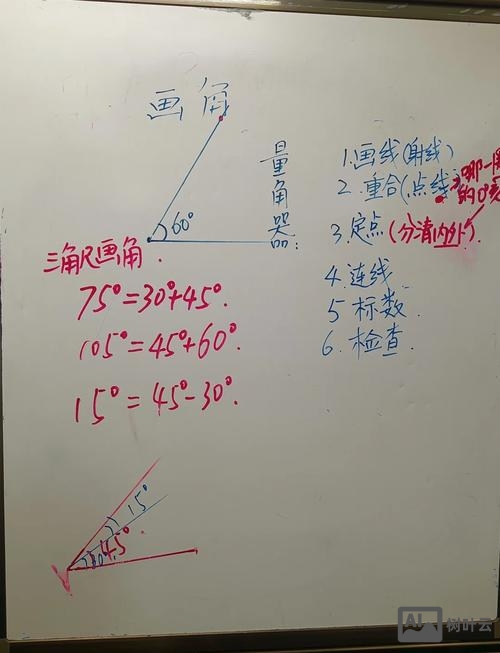 画角
60°
量角器:
1.画线(射线)
2.重合(点线
哪一圈
的0°
3.定点(分清内外).
4.连线
5 标数.
6.检查.
三角尺画角.
75°=30°+45°.
105°=45°+60°.
15°=45°-30°.
15°
45°
树叶云